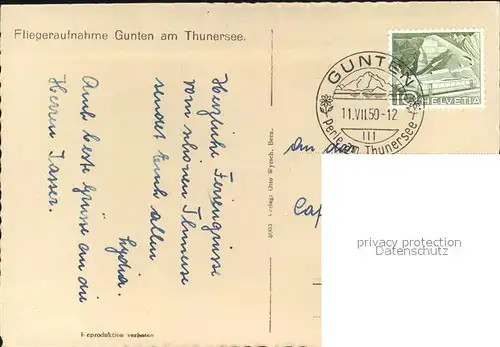 Fliegeraufnahme Gunten am Thunersee.
Herzliche Feriengrüsse
vom schönen Thunersee
sendet Euch allen
Lydia.
Auch beste Grüsse an die
Herren Jasser.
Reproduktion verboten
Verlag: Otto Wyrsch, Bern.
GUNTEN
11.VII.50-12
Perle am Thunersee
HELVETIA
An
privacy protection
Datenschutz